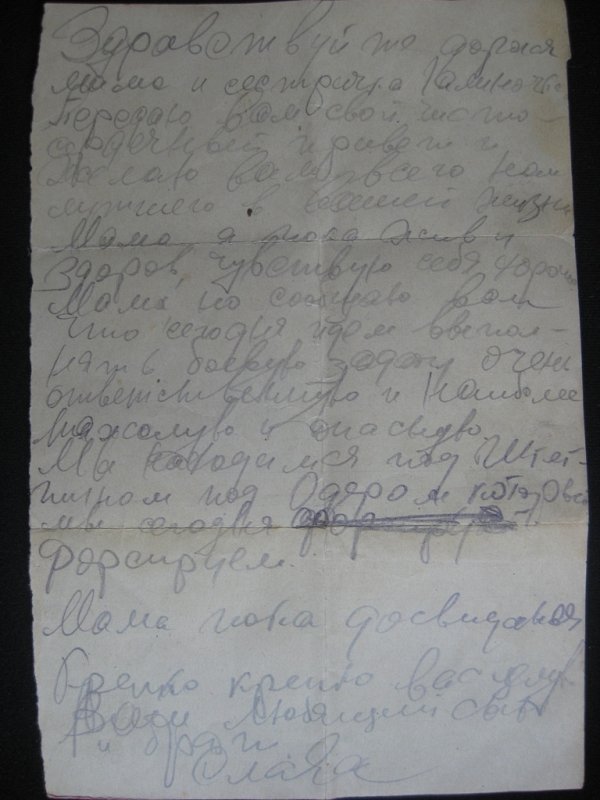 Здравствуйте дорогая
мама и сестричка Галиночка
Передаю вам свой чисто-
сердечный привет и
Желаю вам всего наи
лучшего в вашей жизни
Мама, я пока жив и
здоров, чувствую себя хорошо
Мама, но сообщаю вам
что сегодня идем выпол-
нять боевую задачу очень
ответственную и наиболее
тяжолую и опасную
Мы находимся под Штет-
тином под Одером который
мы сегодня
форсируем.
Мама пока досвидания
Крепко крепко вас целую
Ваш любящий сын
и брат
Слава